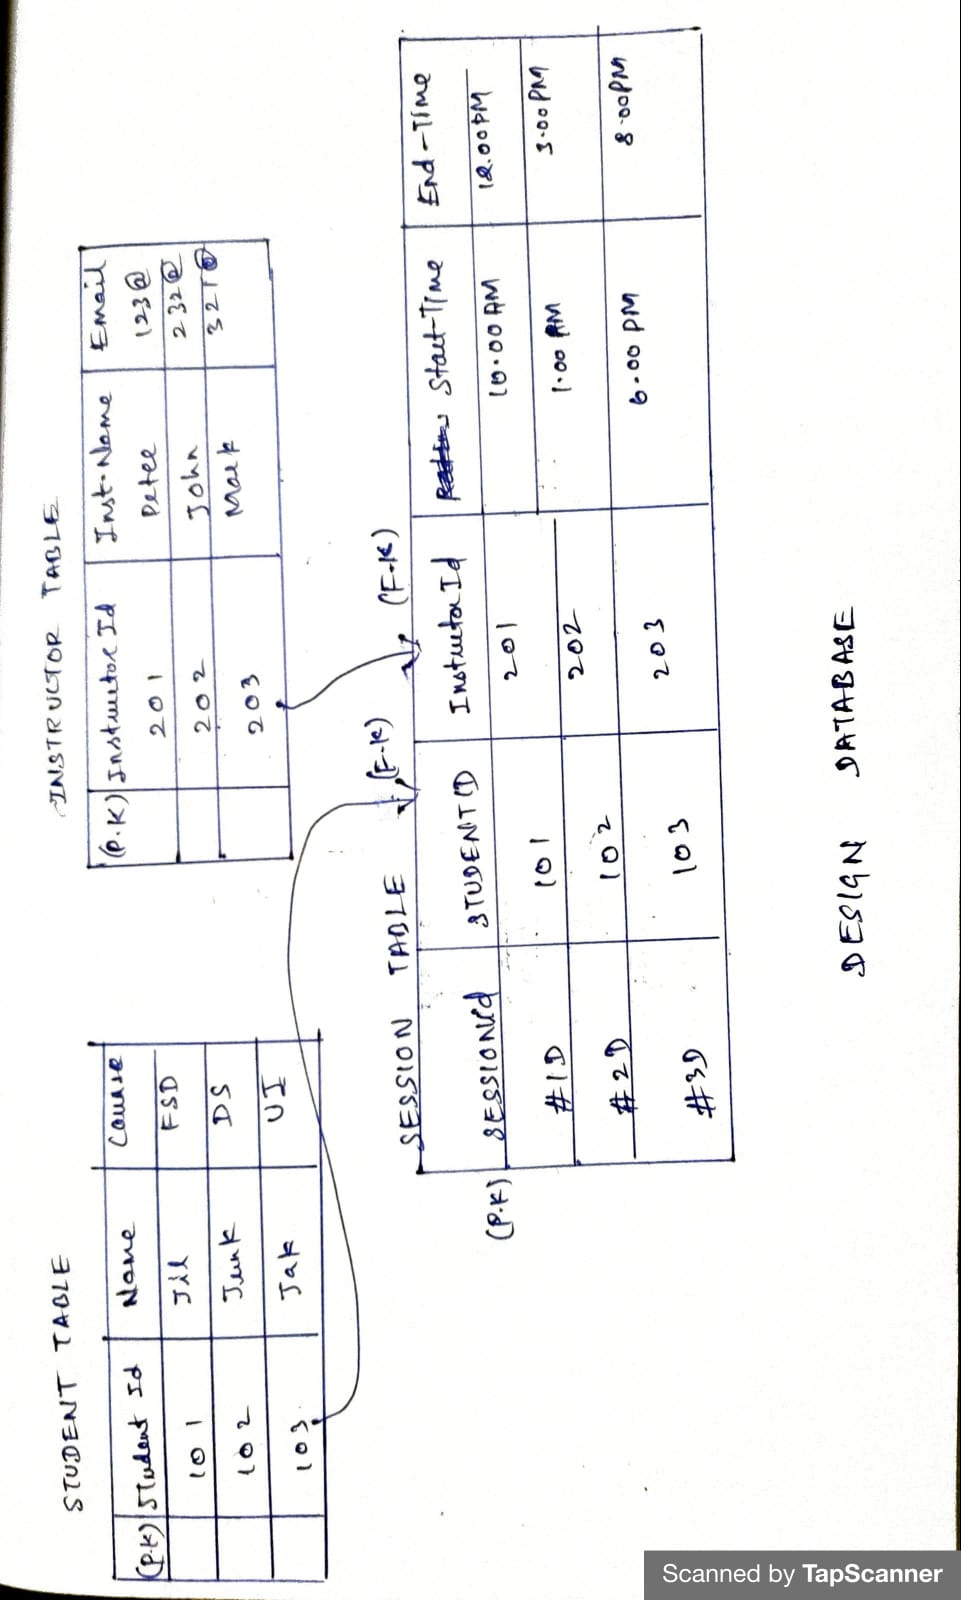 STUDENT TABLE
(P.K) Student Id Name Course
101 Jil FSD
102 Junk DS
103 Jak UI
INSTRUCTOR TABLE
(P.K) Instructor Id Inst. Name Email
201 Peter 123@
202 John 232@
203 Mark 321@
SESSION TABLE (F.K) (F.K)
(P.K) SESSIONId STUDENT ID Instructor Id Start-Time End-Time
#1D 101 201 10.00 AM 12.00 PM
#2D 102 202 1.00 AM 3.00 PM
#3D 103 203 6.00 PM 8.00 PM
DESIGN DATABASE
Scanned by TapScanner